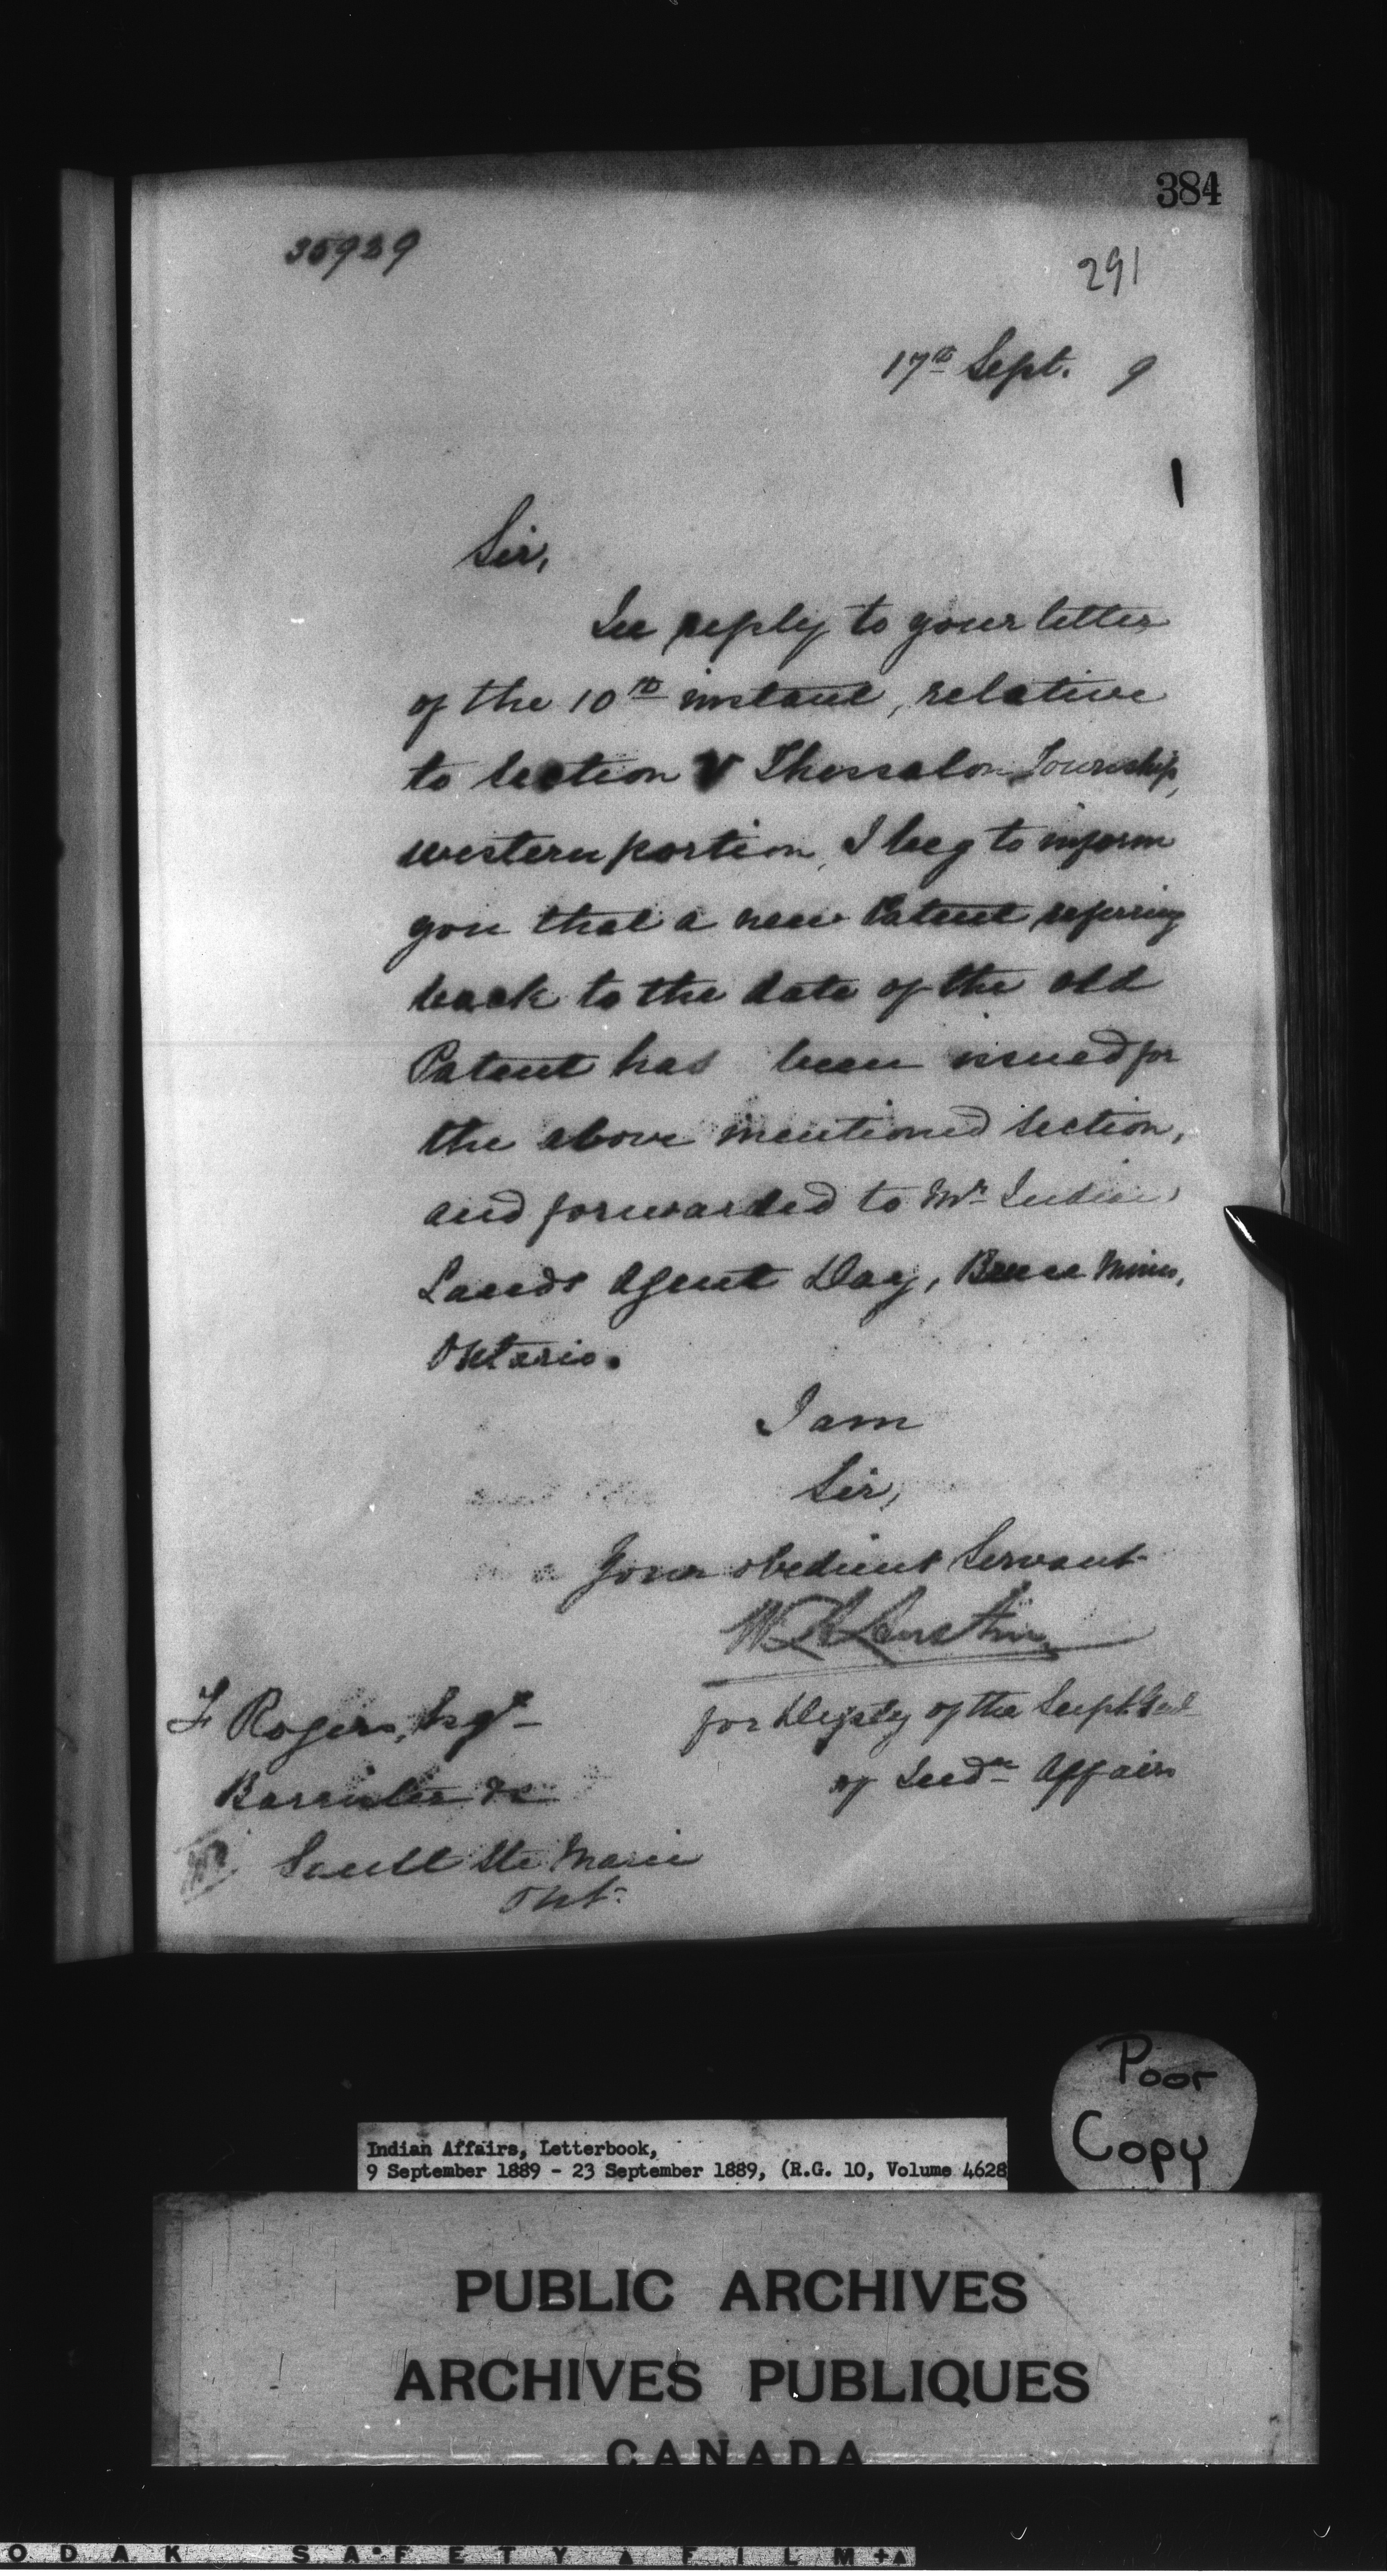 384
35939
291
17th Sept. 9
Sir,
In reply to your letter
of the 10th instant, relative
to Section V Thessalon Township,
western portion, I beg to inform
you that a new Patent referring
back to the date of the old
Patent has been issued for
the above mentioned Section,
and forwarded to Mr Indian
Lands Agent Day, Bruce Mines,
Ontario.
I am
Sir,
Your obedient Servant
for Deputy of the Supt Genl
of Indn Affairs
F Rogers, Esqr
Barrister &c
Sault Ste Marie
Ont.
Poor
Copy
Indian Affairs, Letterbook,
9 September 1889 - 23 September 1889, (R.G. 10, Volume 4628
PUBLIC ARCHIVES
ARCHIVES PUBLIQUES
CANADA
ODAK SAFETY FILM